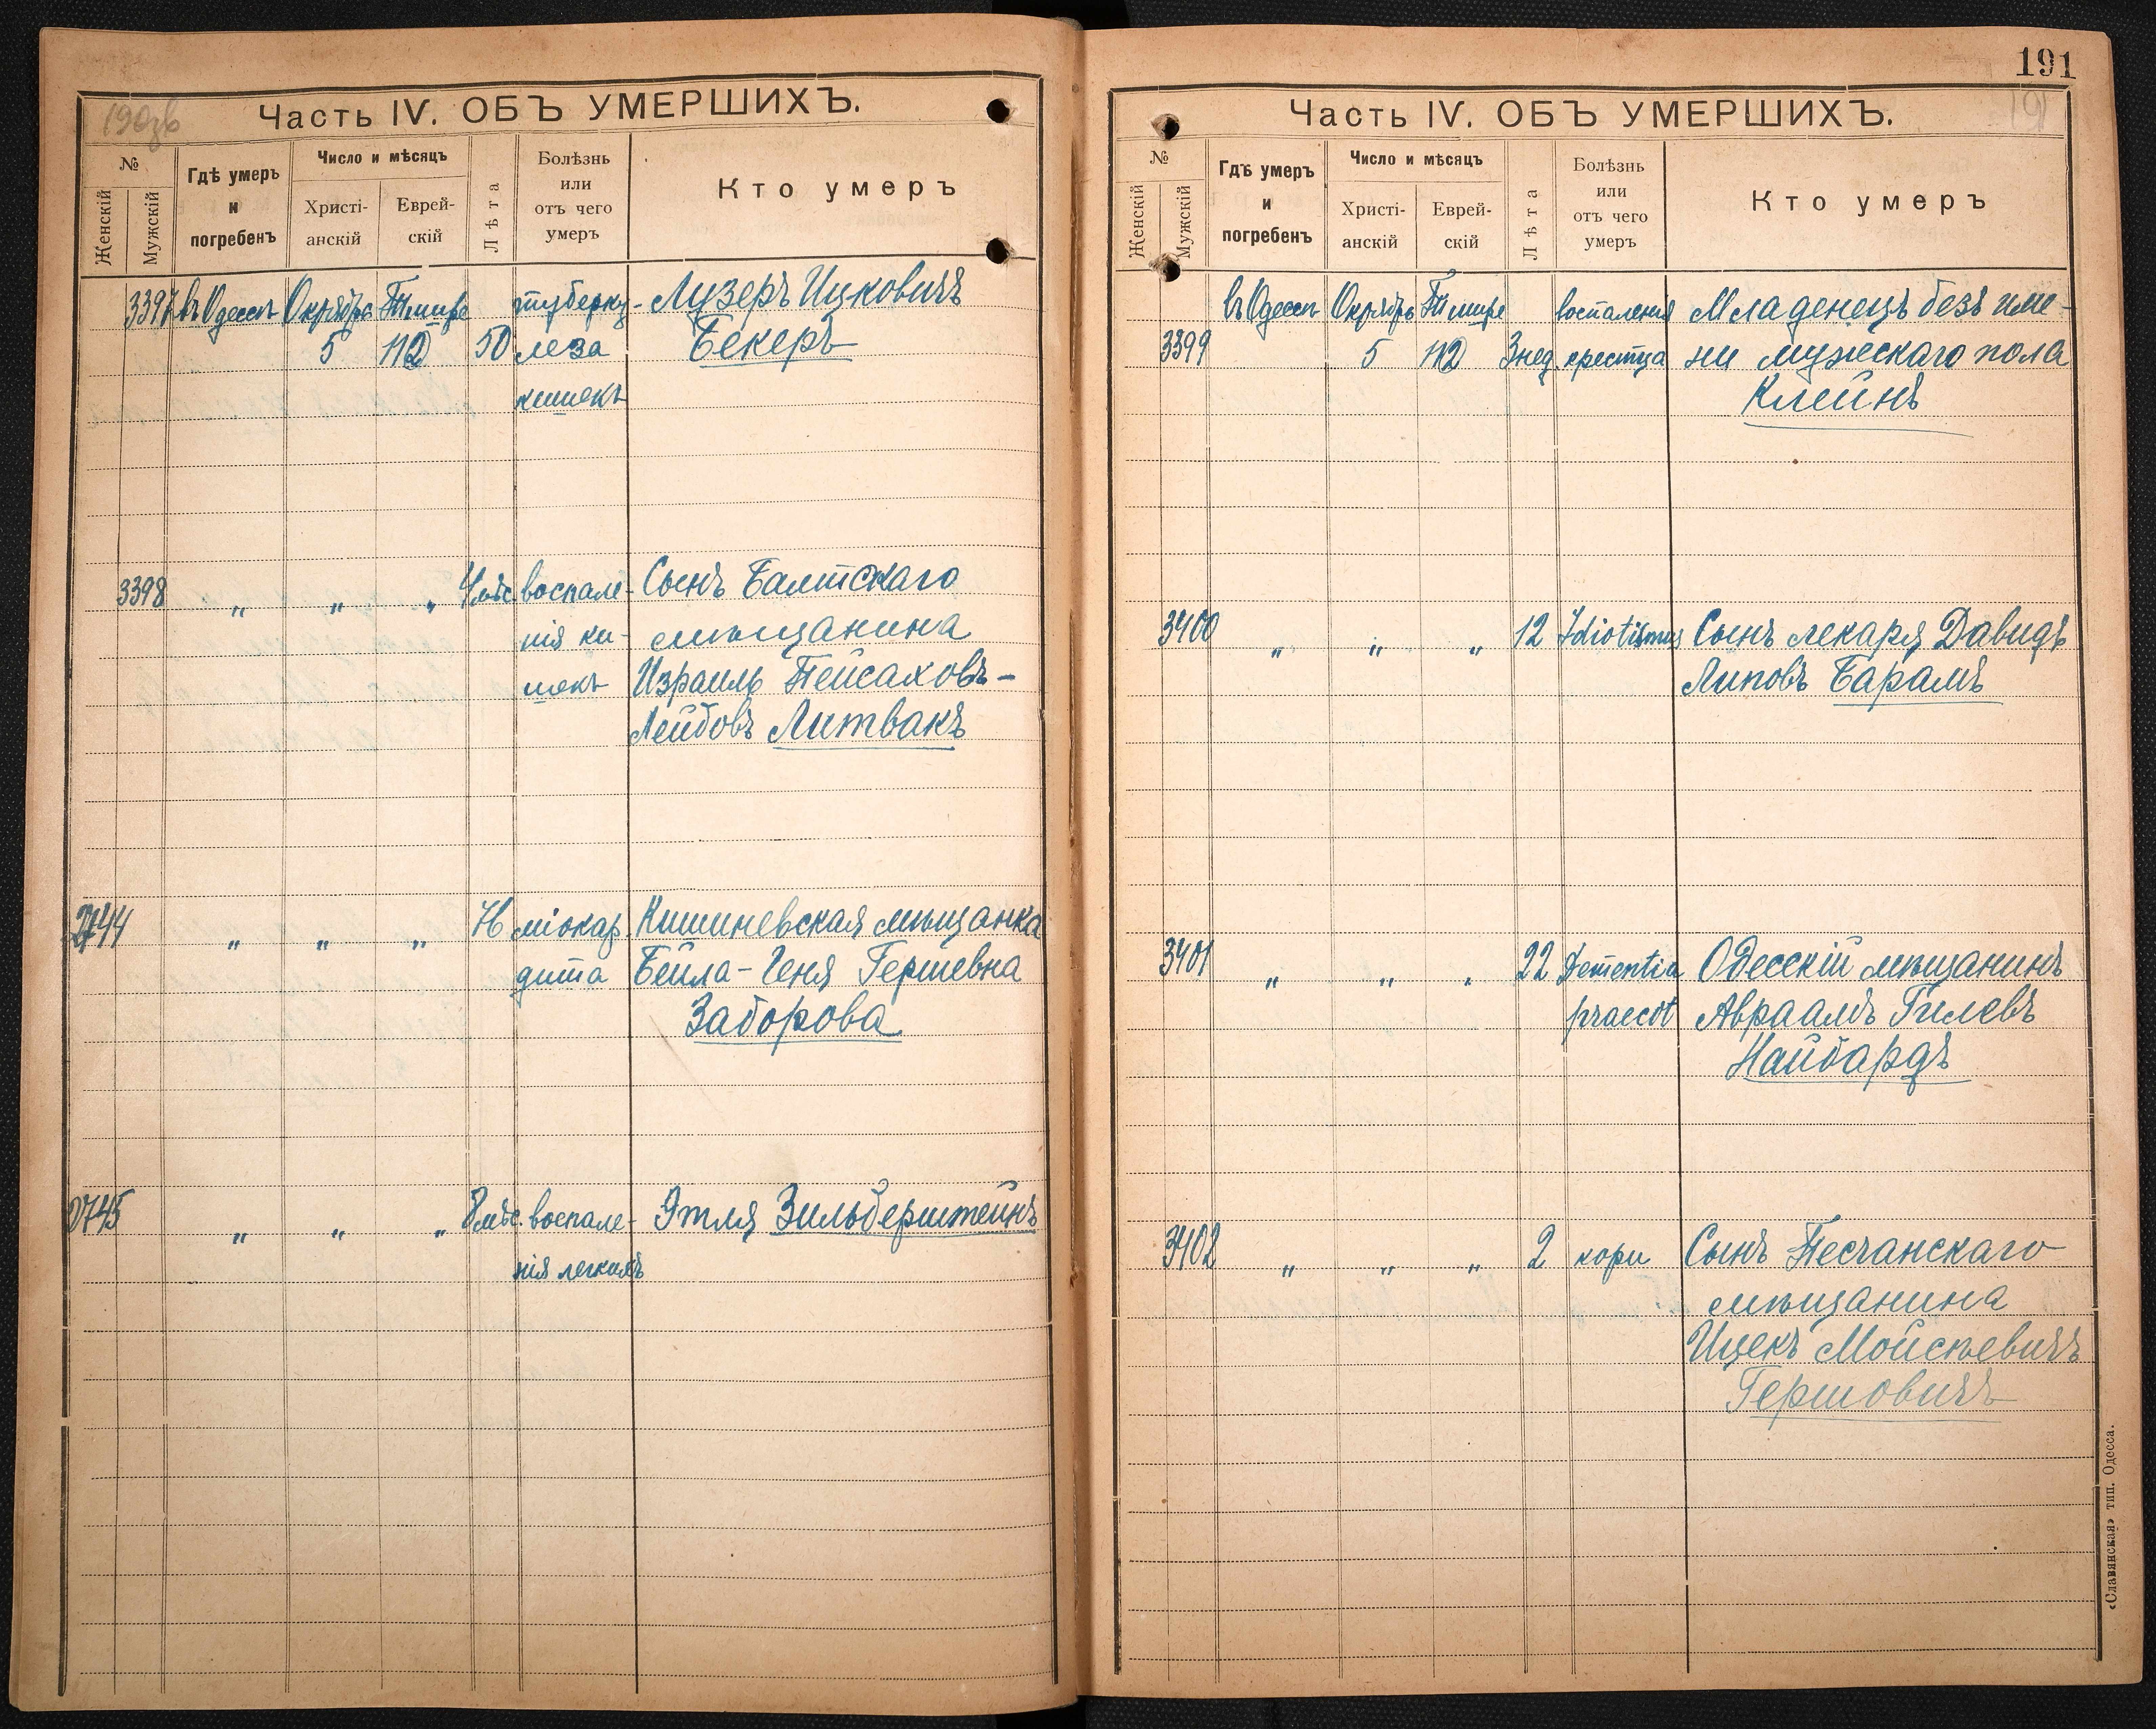 190зв
Часть IV. ОБЪ УМЕРШИХЪ.
№
Женскій
Мужскій
Гдѣ умеръ
и
погребенъ
Число и мѣсяцъ
Христі-
анскій
Еврей-
скій
Лѣта
Болѣзнь
или
отъ чего
умеръ
Кто умеръ
3397 въ Одессѣ Октября Тишре туберку- Лузеръ Ицковичъ
5 112 50 леза Бекеръ
кишекъ
3398 " " " 4 мѣс. воспале- Сынъ Балтскаго
нія ки- мѣщанина
шекъ Израиль Пейсаховъ-
Лейбовъ Литвакъ
2744 " " " 76 міокар Кишиневская мѣщанка
дита Бейла-Геня Гершевна
Заборова
2745 " " " 8 мѣс. воспале- Этля Зильберштейнъ
нія легкихъ
191
191
Часть IV. ОБЪ УМЕРШИХЪ.
№
Женскій
Мужскій
Гдѣ умеръ
и
погребенъ
Число и мѣсяцъ
Христі-
анскій
Еврей-
скій
Лѣта
Болѣзнь
или
отъ чего
умеръ
Кто умеръ
въ Одессѣ Октябрь Тишре воспаленія Младенецъ безъ име-
3399 5 112 3 нед. крестца ни мужескаго пола
Клейнъ
3400 " " " 12 Idiotismus Сынъ лекаря Давидъ
Липовъ Барамъ
3401 " " " 22 Dementia Одесскій мѣщанинъ
praecot Авраамъ Гилевъ
Найбардъ
3402 " " " 2 кори Сынъ Песчанскаго
мѣщанина
Ицекъ Мойсѣевичъ
Гершовичъ
«Славянская» тип. Одесса.